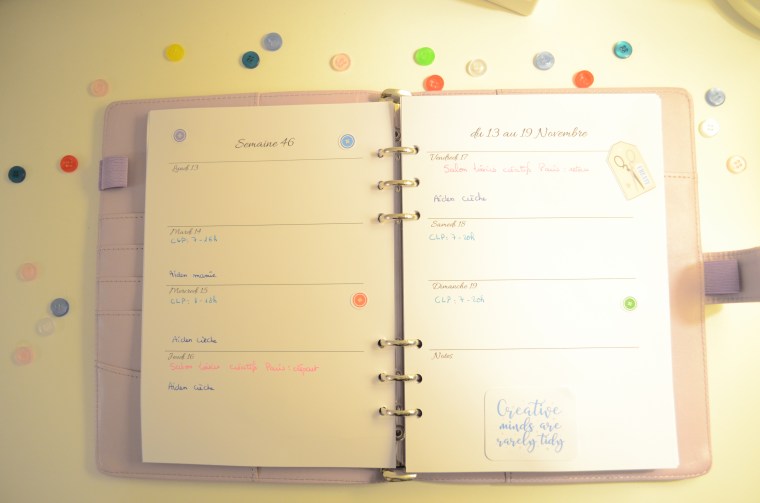 Semaine 46
Lundi 13
Mardi 14
CLP: 7-
Aiden mamie
Mercredi 15
CLP: 7-
Aiden crèche
Jeudi 16
Salon créatif Paris: départ
Aiden crèche
du 13 au 19 Novembre
Vendredi 17
Salon créatif Paris:
Aiden crèche
Samedi 18
CLP: 7-20h
Dimanche 19
CLP: 7-20h
Notes
Creative
minds are
rarely tidy